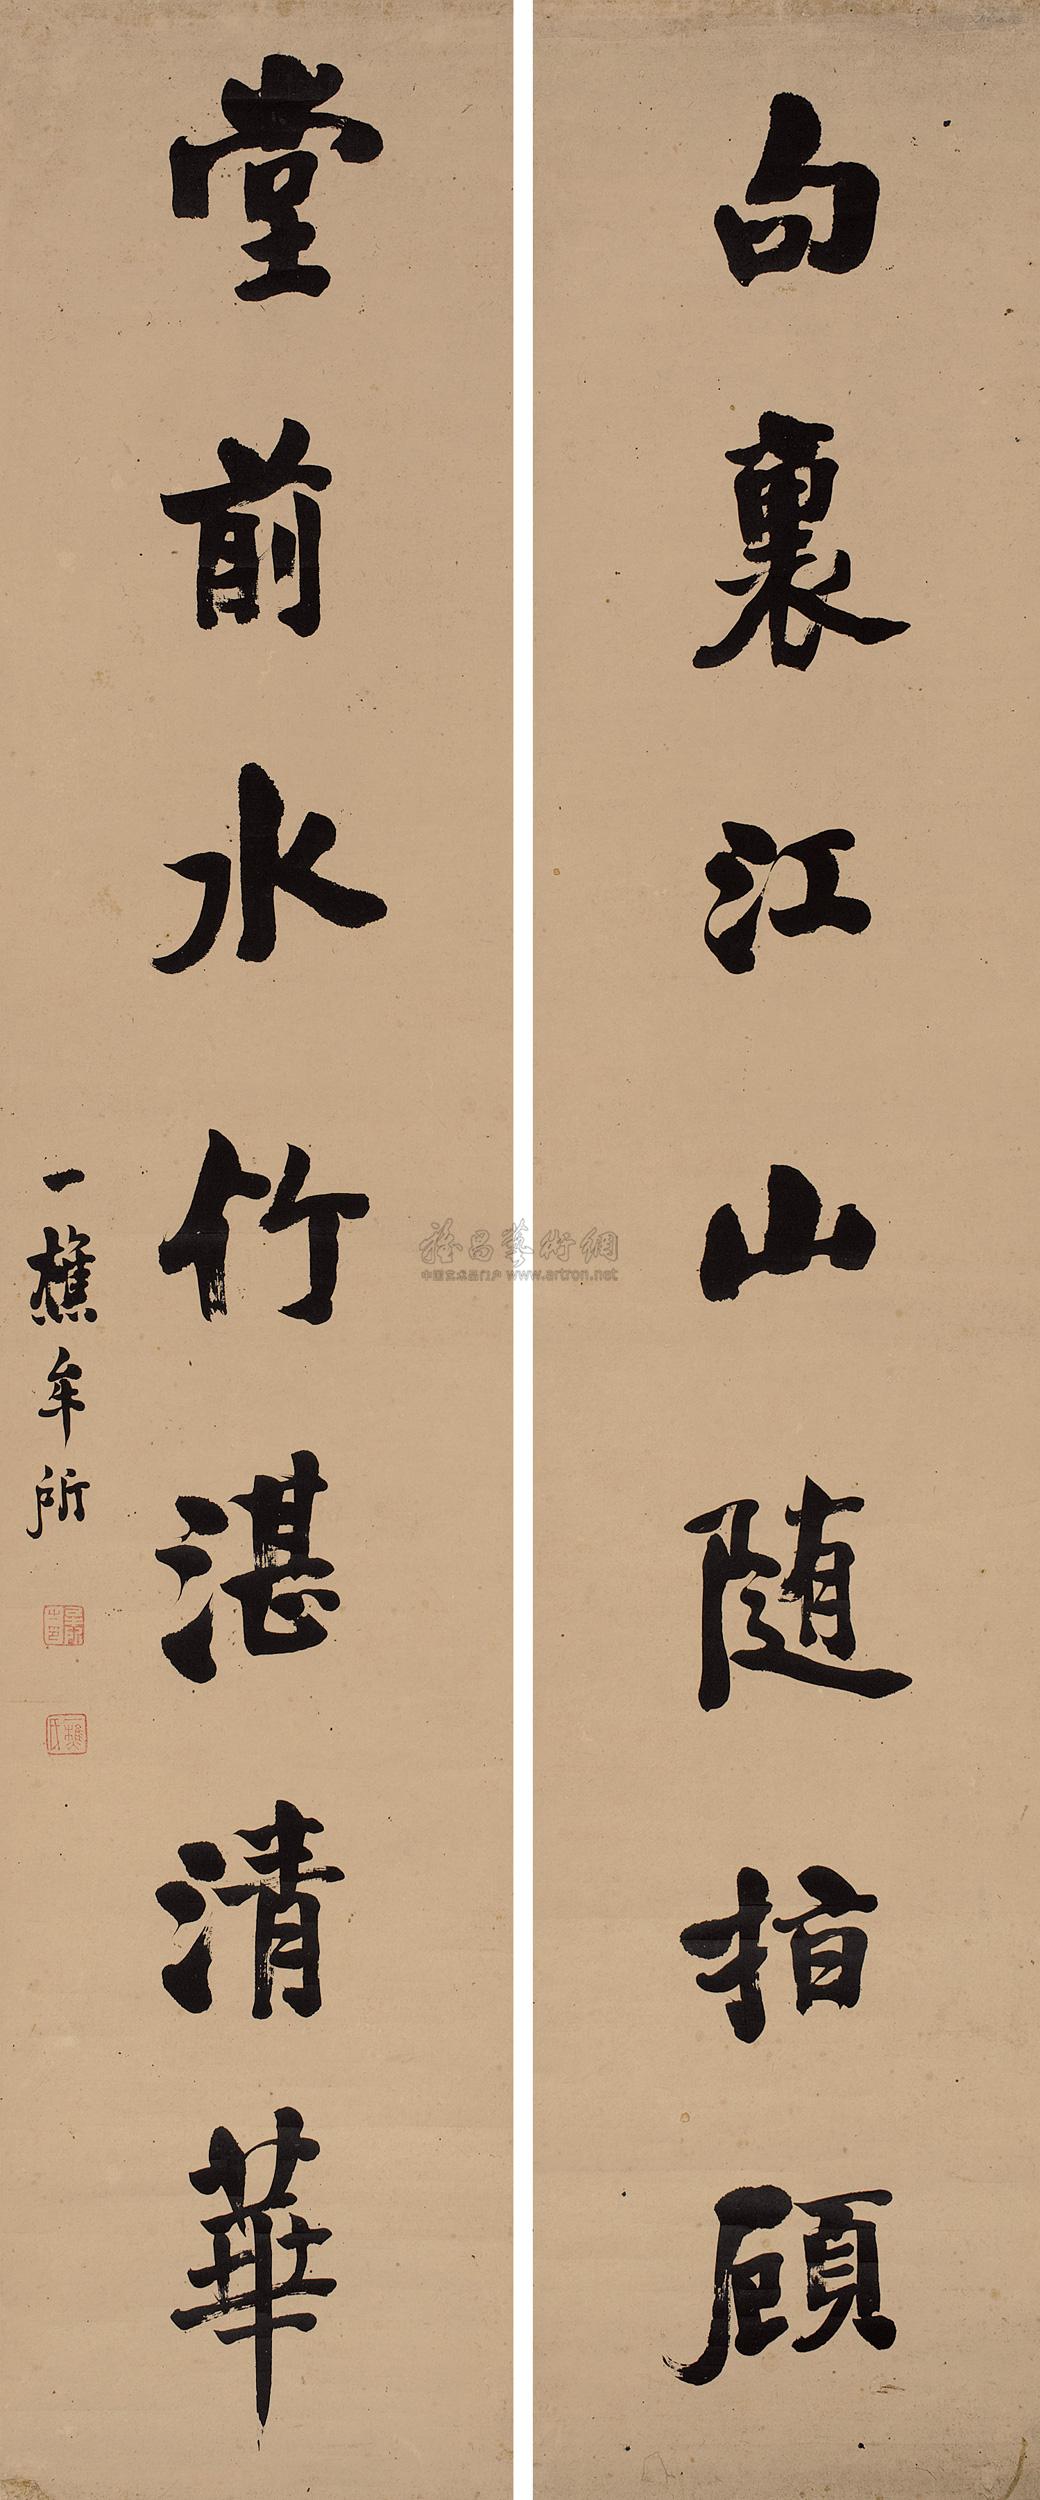 句裏江山随指顧
堂前水竹湛清華
一樵牟所
雅昌藝術網
中国艺术品门户 www.artron.net